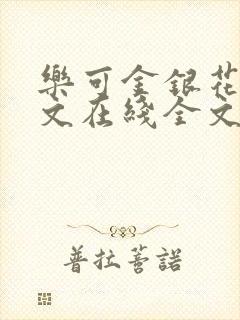 樂可金銀花
文在綫全文
普拉蕾諾